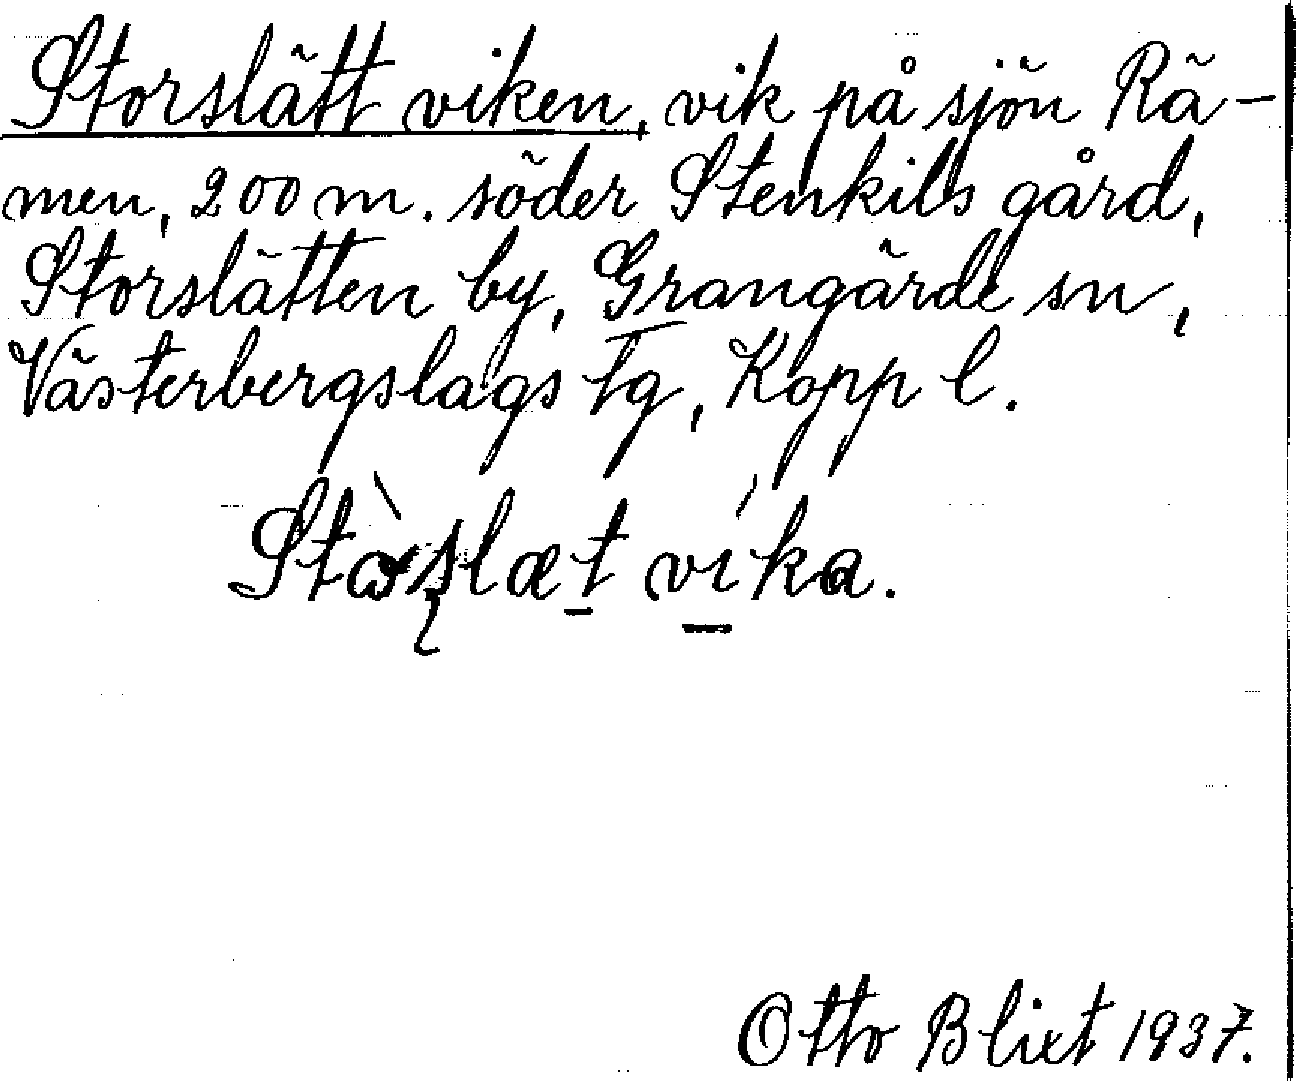 Storslätt viken, vik på sjön Rä-
men, 200 m. söder Stenkils gård,
Storslätten by, Grangärde sn,
Västerbergslags tg, Kopp l.
Stɷ̀ʂlæt víka.
Otto Blixt 1937.